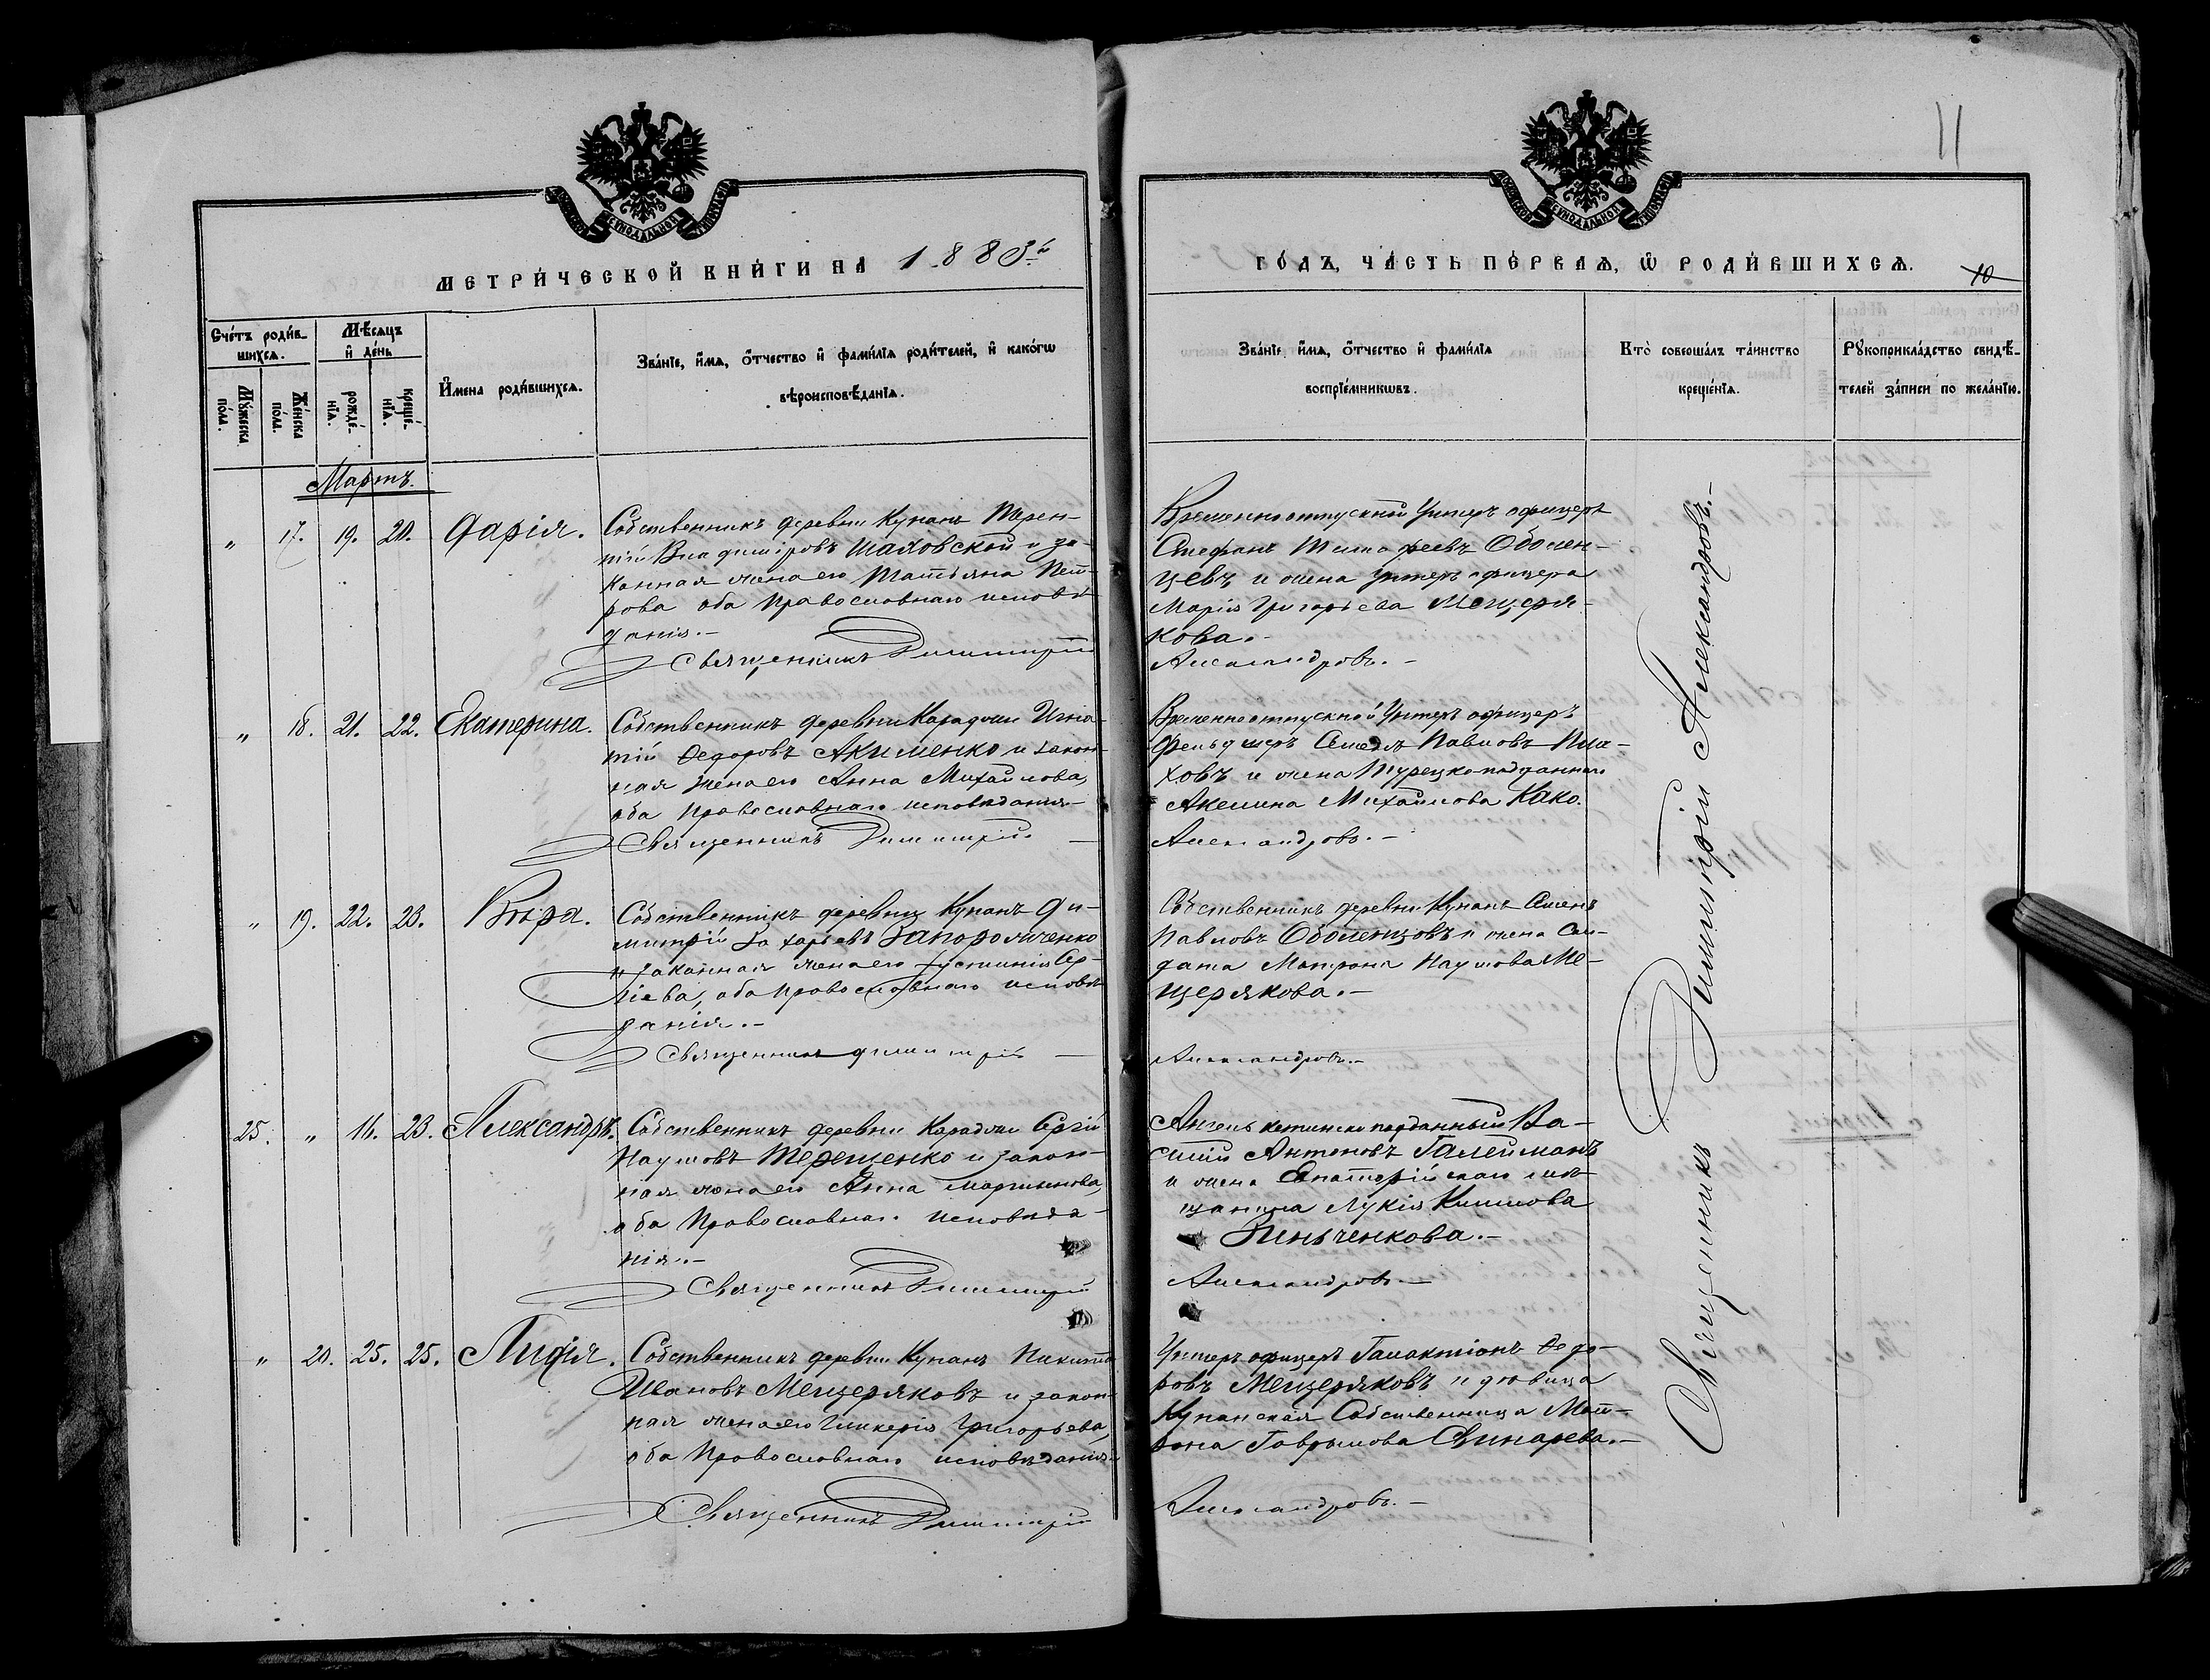 11
МЕТРИ́ЧЕСКОЙ КНИ́ГИ НА 1883й
ГО́ДЪ, ЧА́СТЬ ПЕ́РВАѦ, Ѡ РОДИ́ВШИХСѦ.
10
Сче́тъ роди́в-
шихсѧ.
Мѣ́сѧцъ
и҆ де́нь
Мꙋ́жеска по́ла.
Же́нска по́ла.
рожде́-
нїѧ.
креще́-
нїѧ.
И҆мена роди́вшихсѧ.
Зва́нїе, и҆́мѧ, ѻ҆́тчество и҆ фами́лїѧ роди́телей, и҆ како́гѡ
вѣроисповѣ́данїѧ.
Зва́нїе, и҆́мѧ, ѻ҆́тчество и҆ фами́лїѧ
воспрїе́мникѡвъ.
Кто̀ соверша́лъ та́инство
креще́нїѧ.
Рꙋкоприкла́дство свидѣ́-
телей за́писи по жела́нїю.
Мартъ.
" 17. 19. 20. Дарія.
Собственникъ деревни Купань Терен-
тій Владиміровъ Шаховской и за-
конная жена его Татьяна Пет-
рова оба Православнаго исповѣ-
данія.-
Священникъ Димитрій
Временноотпускной Унтеръ офицеръ
Стефанъ Тимофеевъ Оболен-
цевъ и жена унтеръ офицера
Марія Григорьева Мещеря-
кова.-
Александровъ.-
" 18. 21. 22. Екатерина.
Собственникъ деревни Караджи Игна-
тій Федоровъ Акименко и закон-
ная жена его Анна Михайлова,
оба Православнаго исповѣданія-
Священникъ Димитрій
Временноотпускной Унтеръ офицеръ
Фельдшеръ Семенъ Павловъ
и жена Турецкоподданнаго
Акелина Михайлова Како.
Александровъ.-
" 19. 22. 23. Вѣра.
Собственникъ деревни Купань Ди-
митрій Захарьевъ Запороженко
и законная жена его Іустинія Сер-
гіева, оба Православнаго исповѣ-
данія.-
Священникъ Димитрій
Собственникъ деревни Купань Семенъ
Павловъ Оболенцовъ и жена Сол-
дата Матрона Наумова Ме-
щерякова.-
Александровъ.-
25. " 16. 23. Александръ.
Собственникъ деревни Караджи Сергій
Наумовъ Терещенко и закон-
ная жена его Анна Мартинова,
оба Православнаго исповѣда-
нія.-
Священникъ Димитрій
подданный Ва-
силій Антоновъ Галейманъ
и жена Евпаторійскаго мѣ-
щанина Лукія Климова
Зиньченкова.-
Александровъ.-
" 20. 25. 25. Лидія.
Собственникъ деревни Купань Никита
Ивановъ Мещеряковъ и закон-
ная жена его Гликерія Григорьева,
оба Православнаго исповѣданія
Священникъ Димитрій
Унтеръ офицеръ Галактіонъ Федо-
ровъ Мещеряковъ и дѣвица
Купанская Собственница Мат-
рона Гаврилова Свинарева.-
Александровъ.-
Священникъ Димитрій Александровъ.-